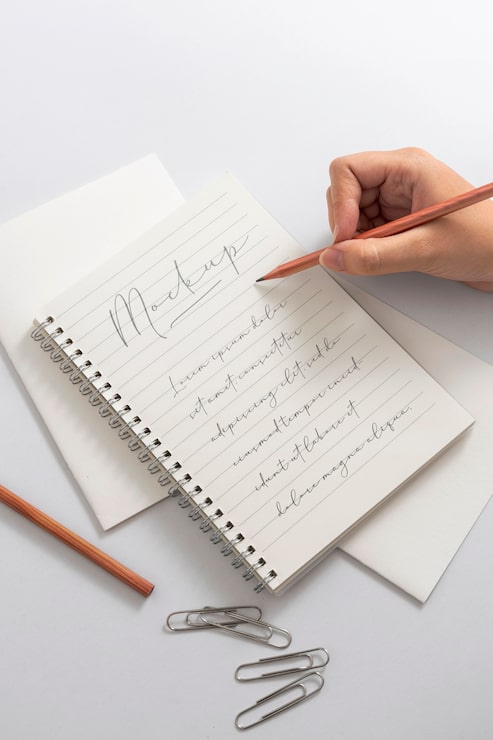 Mockup
Lorem ipsum dolor
sit amet, consectetur
adipiscing elit, sed do
eiusmod tempor incid-
idunt ut labore et
dolore magna aliqua.